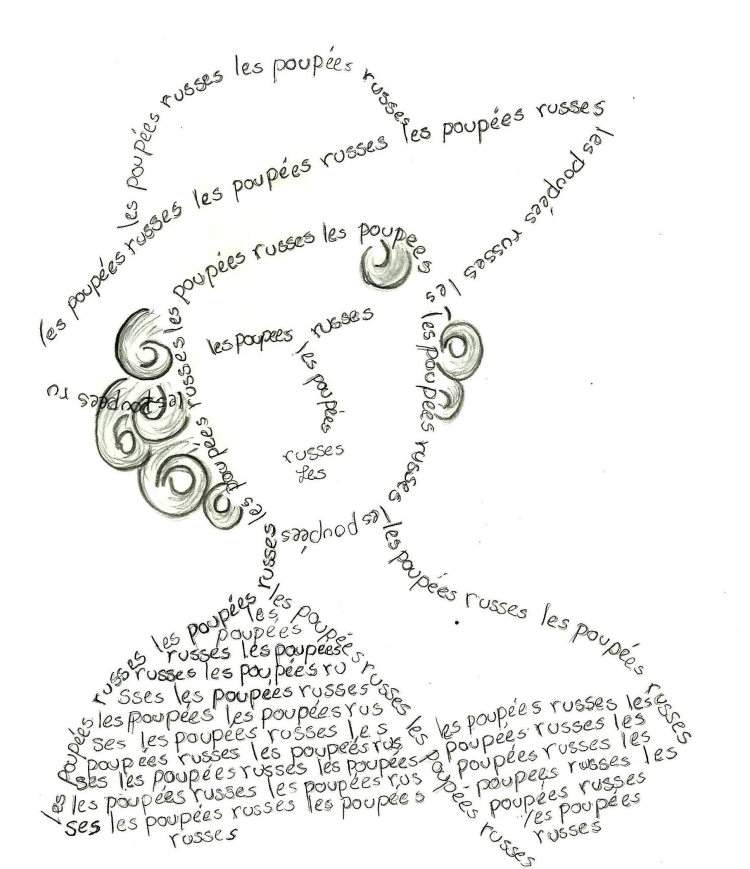 les poupées russes les poupées russes
les poupées russes les poupées russes les poupées russes
les poupées russes les
les poupées russes les poupées
les
les poupées russes
les poupées russes
les poupées
russes
les
les poupées russes
les poupées ru
les poupées
les poupées russes les poupées russes
les poupées russes les poupées russes
les poupées russes les poupées russes
les
poupées
russes les poupées
russes les poupées ru
sses les poupées russes
les poupées les poupées rus
ses les poupées russes les
poupées russes les poupées rus
ses les poupées russes les poupées
les poupées russes les poupées rus
ses les poupées russes les poupées
russes
les poupées russes les
poupées russes les
poupées russes les
poupees russes les
poupées russes
les poupées
russes